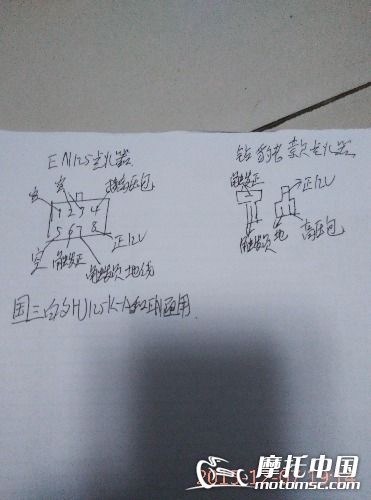 EN125点火器
钻豹老款点火器
空
空
接高压包
触发正
正12V
1 2 3 4
5 6 7 8
空
触发正
正12V
触发负
地线
触发负
地
高压包
国三的HJ125K-A和EN通用
摩托中国
motomsc.com